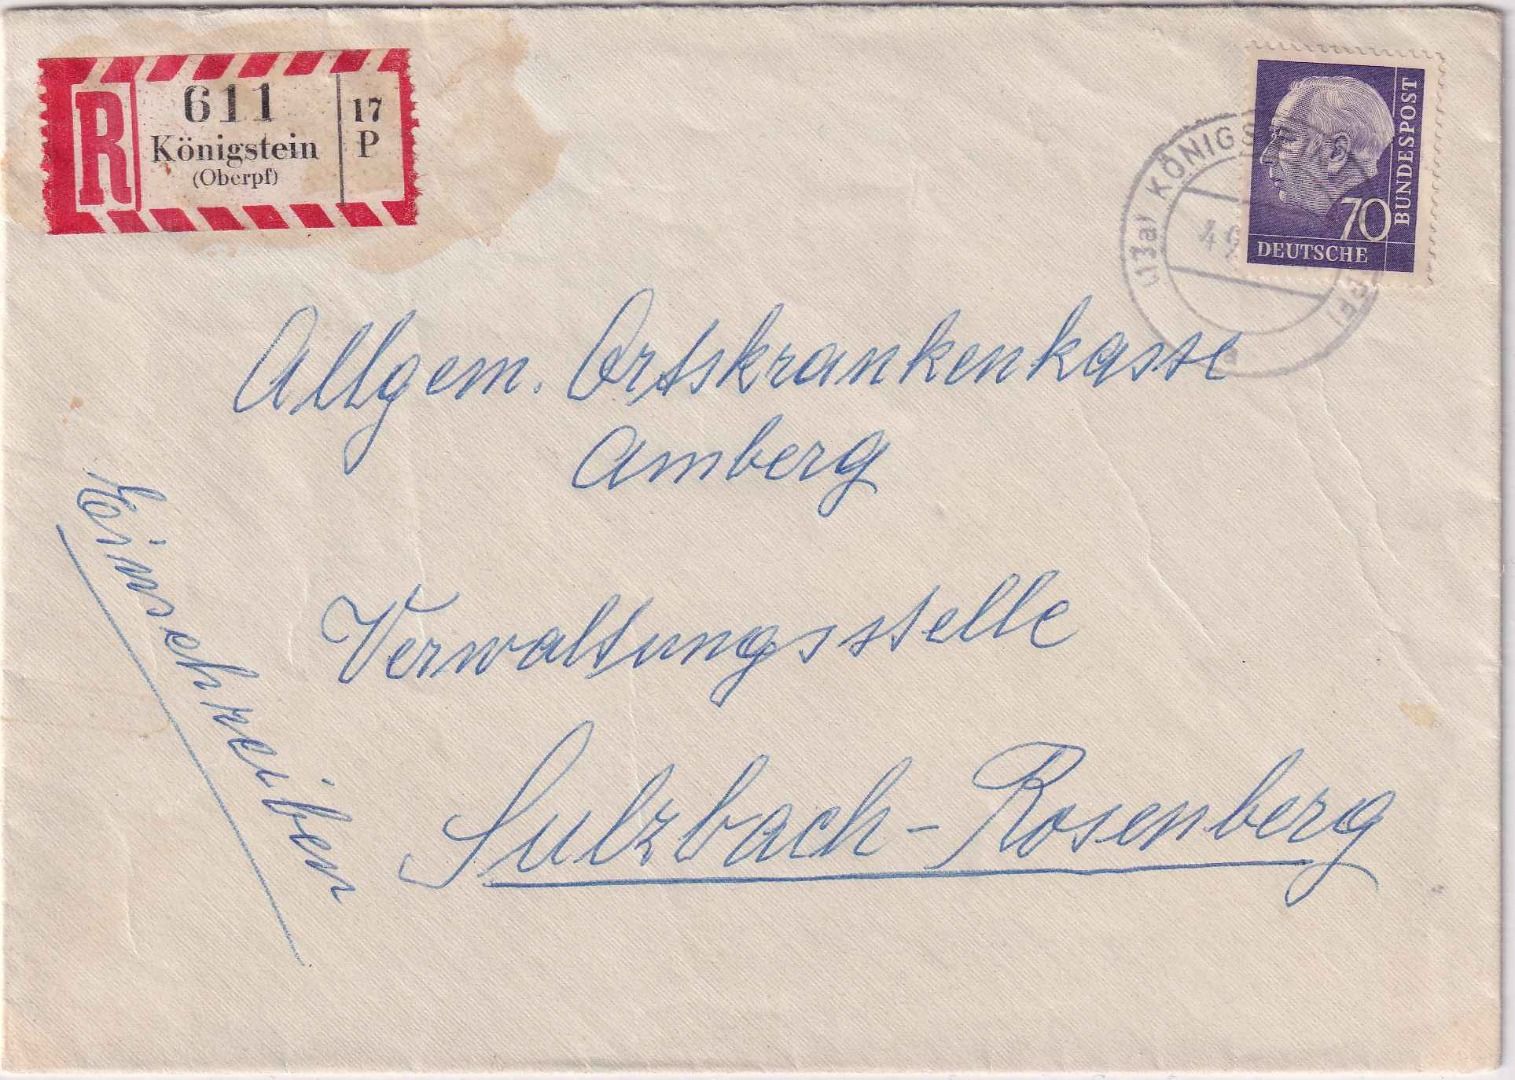 R
611
Königstein
(Oberpf)
17
P
(13a) KÖNIGS
a
70
DEUTSCHE
BUNDESPOST
Allgem. Ortskrankenkasse
Amberg
Einschreiben
Verwaltungsstelle
Sulzbach-Rosenberg